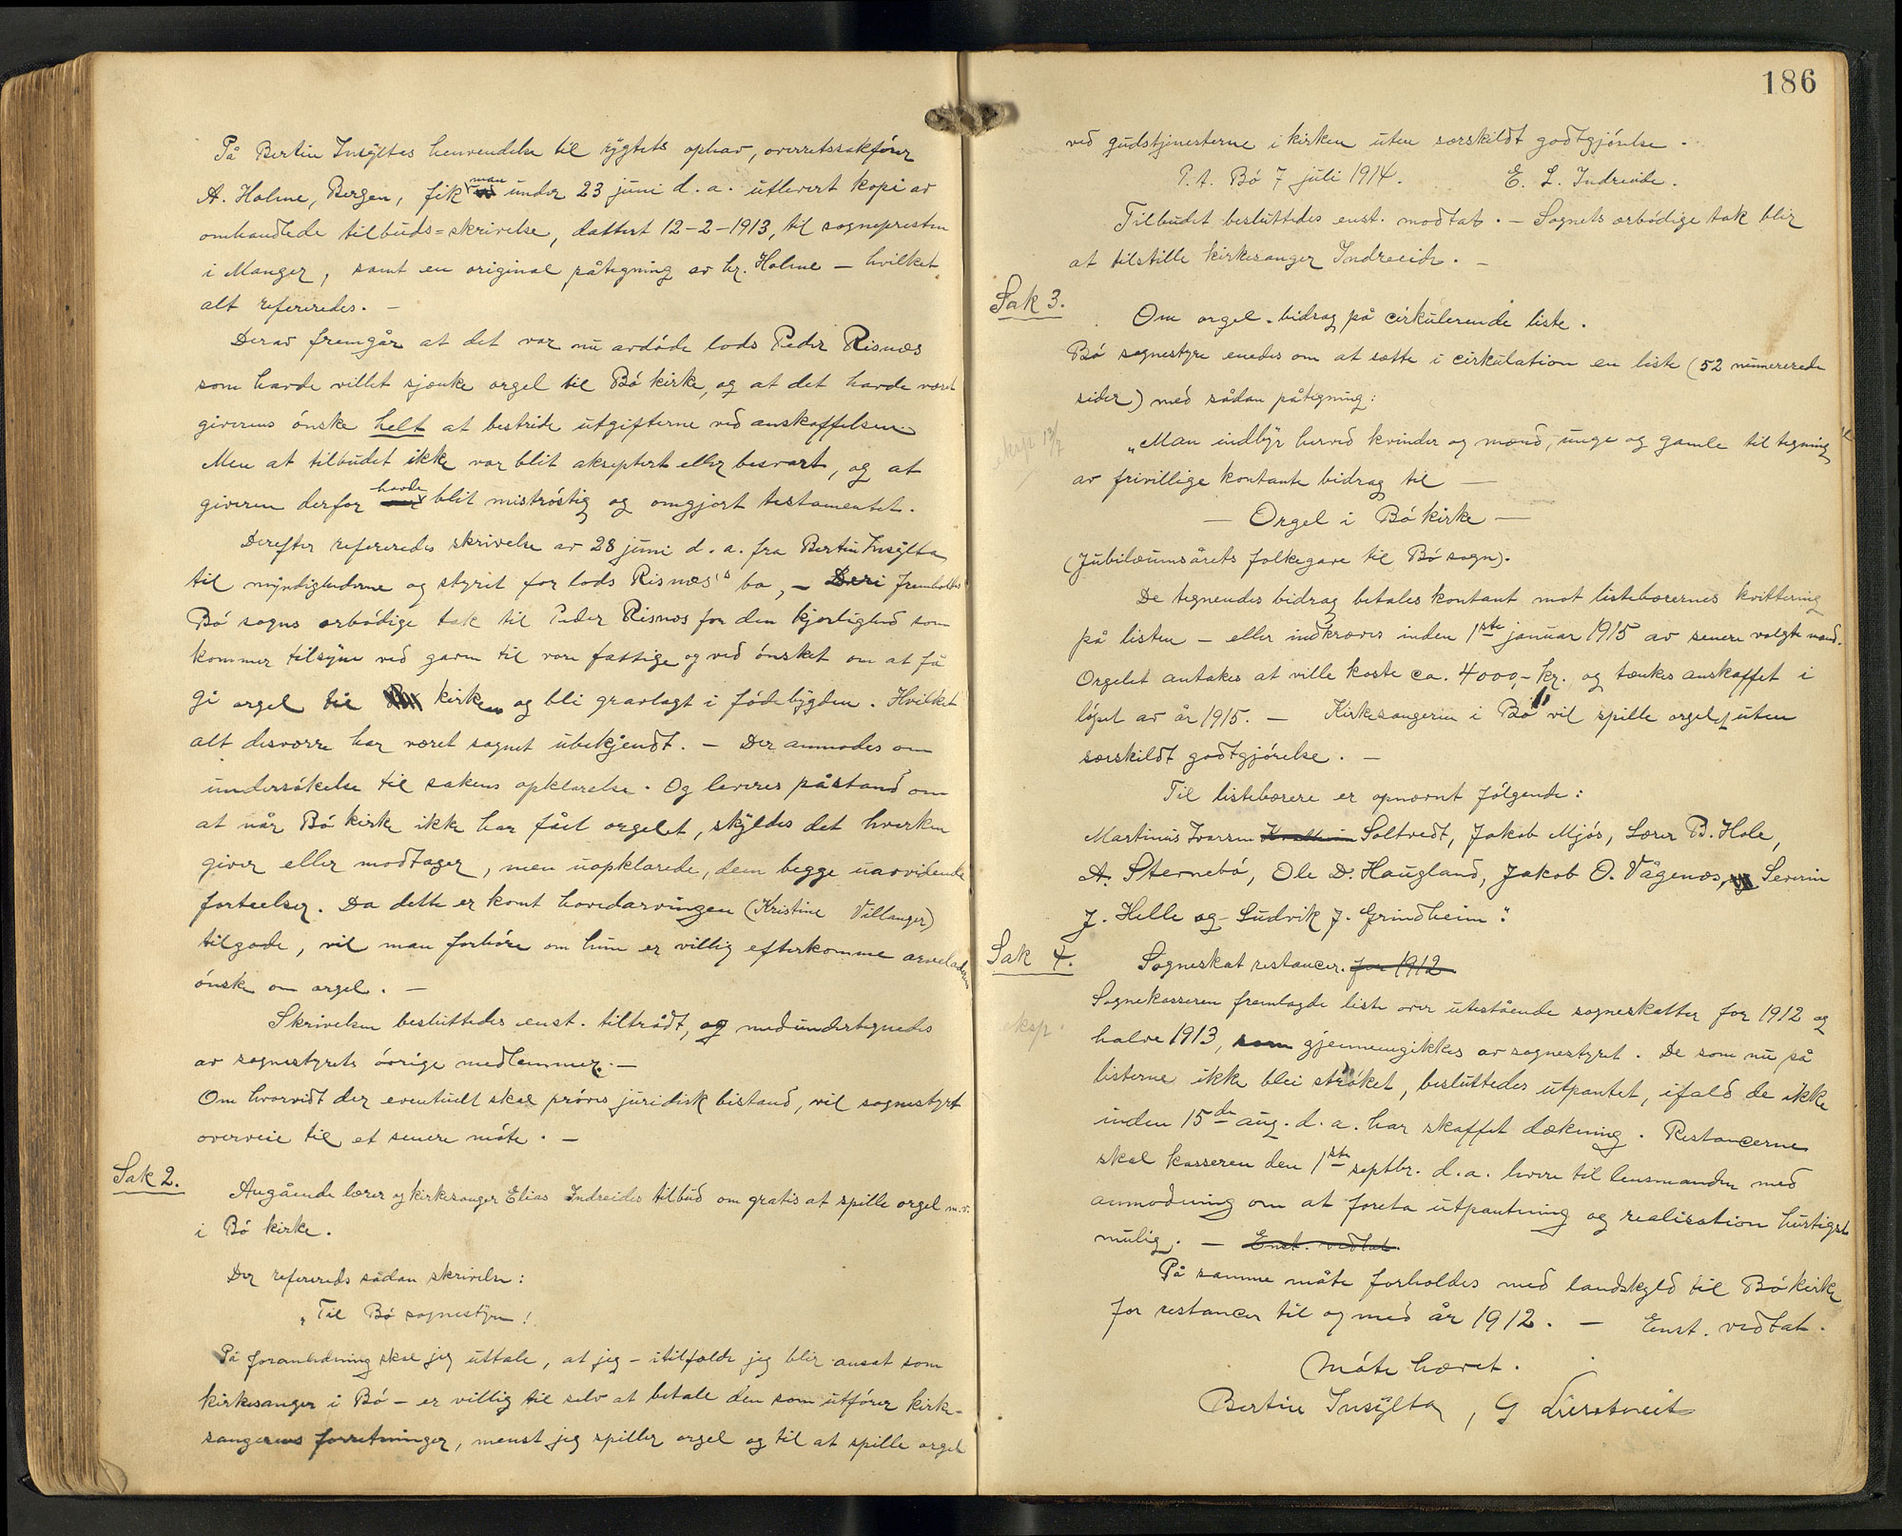 På Bertin Insýltas henvendelse til rýgtets ophav, overretssakfører
A. Holme, Bergen, fik man under 23 juni d. a. utlevert kopi av
omhandlede tilbuds=skrivelse, dattert 12-2-1913, til sognepresten
i Manger, samt en original påtegning av hr. Holme – hvilket
alt refereredes. –
Derav fremgår at det var nu avdøde lods Peder Risnæs
som havde villet sjænke orgel til Bø kirke, og at det havde været
giverens ønske helt at bestride utgifterne ved anskaffelsen.
Men at tilbudet ikke var blit akseptert eller besvart, og at
giveren derfor havde blit mistrøstig og omgjort testamentet.
Derefter refereredes skrivelse av 28 juni d. a. fra Bertin Insýlta
til mýndighederne og styret for lods Risnæs's bo, – Deri fremholdtes
Bø sogns ærbødige tak til Peder Risnæs for den kjærlighed som
kommer tilsýne ved gaven til vore fattige og ved ønsket om at få
gi orgel til kirken og bli gravlagt i fødebýgden. Hvilket
alt desværre har været sognet ubekjendt. – Der anmodes om
undersøkelse til sakens opklarelse. Og leveres påstand om
at når Bø kirke ikke har fået orgelet, skýldes det hverken
giver eller modtager, men uopklarede, dem begge uavvidende
forteelser. Da dette er komt hovedarvingen (Kristine Villanger)
tilgode, vil man forhøre om hun er villig efterkomme arveladers
ønske om orgel. –
Skrivelsen besluttedes enst. tiltrådt, og medundertegnedes
av sognestyrets øvrige medlemmer. –
Om hvorvidt der eventuelt skal prøves juridisk bistand, vil sognestyret
overveie til et senere møte. –
Sak 2.
Angående lærer og kirkesanger Elias Indreides tilbud om gratis at spille orgel m.v.
i Bø kirke.
Der refereredes sådan skrivelse:
„Til Bø sognestýre!
På foranledning skal jeg uttale, at jeg – itilfælde jeg blir ansat som
kirkesanger i Bø – er villig til selv at betale den som utfører kirke-
sangerens forretninger, menst jeg spiller orgel og til at spille orgel
186
ved gudstjenesterne i kirken uten særskildt godtgjørelse.
P.t. Bø 7 juli 1914. E. L. Indreide.
Tilbudet besluttedes enst. modtat. – Sognets ærbødige tak blir
at tilstille kirkesanger Indreide. –
Sak 3.
Om orgel-bidrag på cirkulerende liste.
Bø sognestyre enedes om at sætte i cirkulation en liste (52 nummererede
sider) med sådan påtegning:
eksp 13/7
„Man indbýr herved kvinder og mænd, unge og gamle til tegning
av frivillige kontante bidrag til –
– Orgel i Bø kirke –
(Jubilæumsårets folkegave til Bø sogn).
De tegnendes bidrag betales kontant mot listebærernes kvittering
på listen – eller indkræves inden 1ste januar 1915 av senere valgte mænd.
Orgelet antakes at ville koste ca. 4000,- kr. og tænkes anskaffet i
løpet av år 1915. – Kirkesangeren i Bø vil spille orgelet uten
særskildt godtgjørelse. –
Til listebærere er opnævnt følgende:
Martinus Ivarsen Soltvedt, Jakob Mjøs, Lærer B. Hole,
A. Sternebø, Ole D. Haugland, Jakob O. Vågenæs, Severin
J. Helle og Ludvik J. Grindheim."
Sak 4.
Sogneskat restancer. for 1912
Sognekasseren fremlagde liste over utestående sogneskatter for 1912 og
eksp.
halve 1913, som gjennemgikkes av sognestyret. De som nu på
listerne ikke blei strøket, besluttedes utpantet, ifald de ikke
inden 15de aug. d. a. har skaffet dækning. Restancerne
skal kasseren den 1ste septbr. d. a. levere til lensmanden med
anmodning om at foreta utpantning og realisation hurtigst
mulig. – Enst. vedtat.
På samme måte forholdes med landskyld til Bø kirke
for restancer til og med år 1912. – Enst. vedtat.
Møte hævet.
Bertin Insýlta,